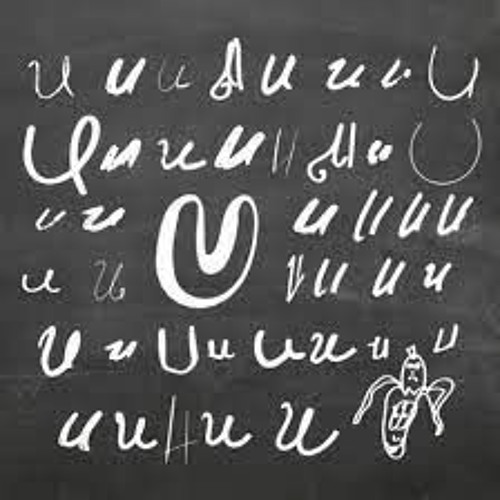 u u u u u u U
U u u u u U
u u U u u u u
u u u u u u
u u U u u u u u
u u u u